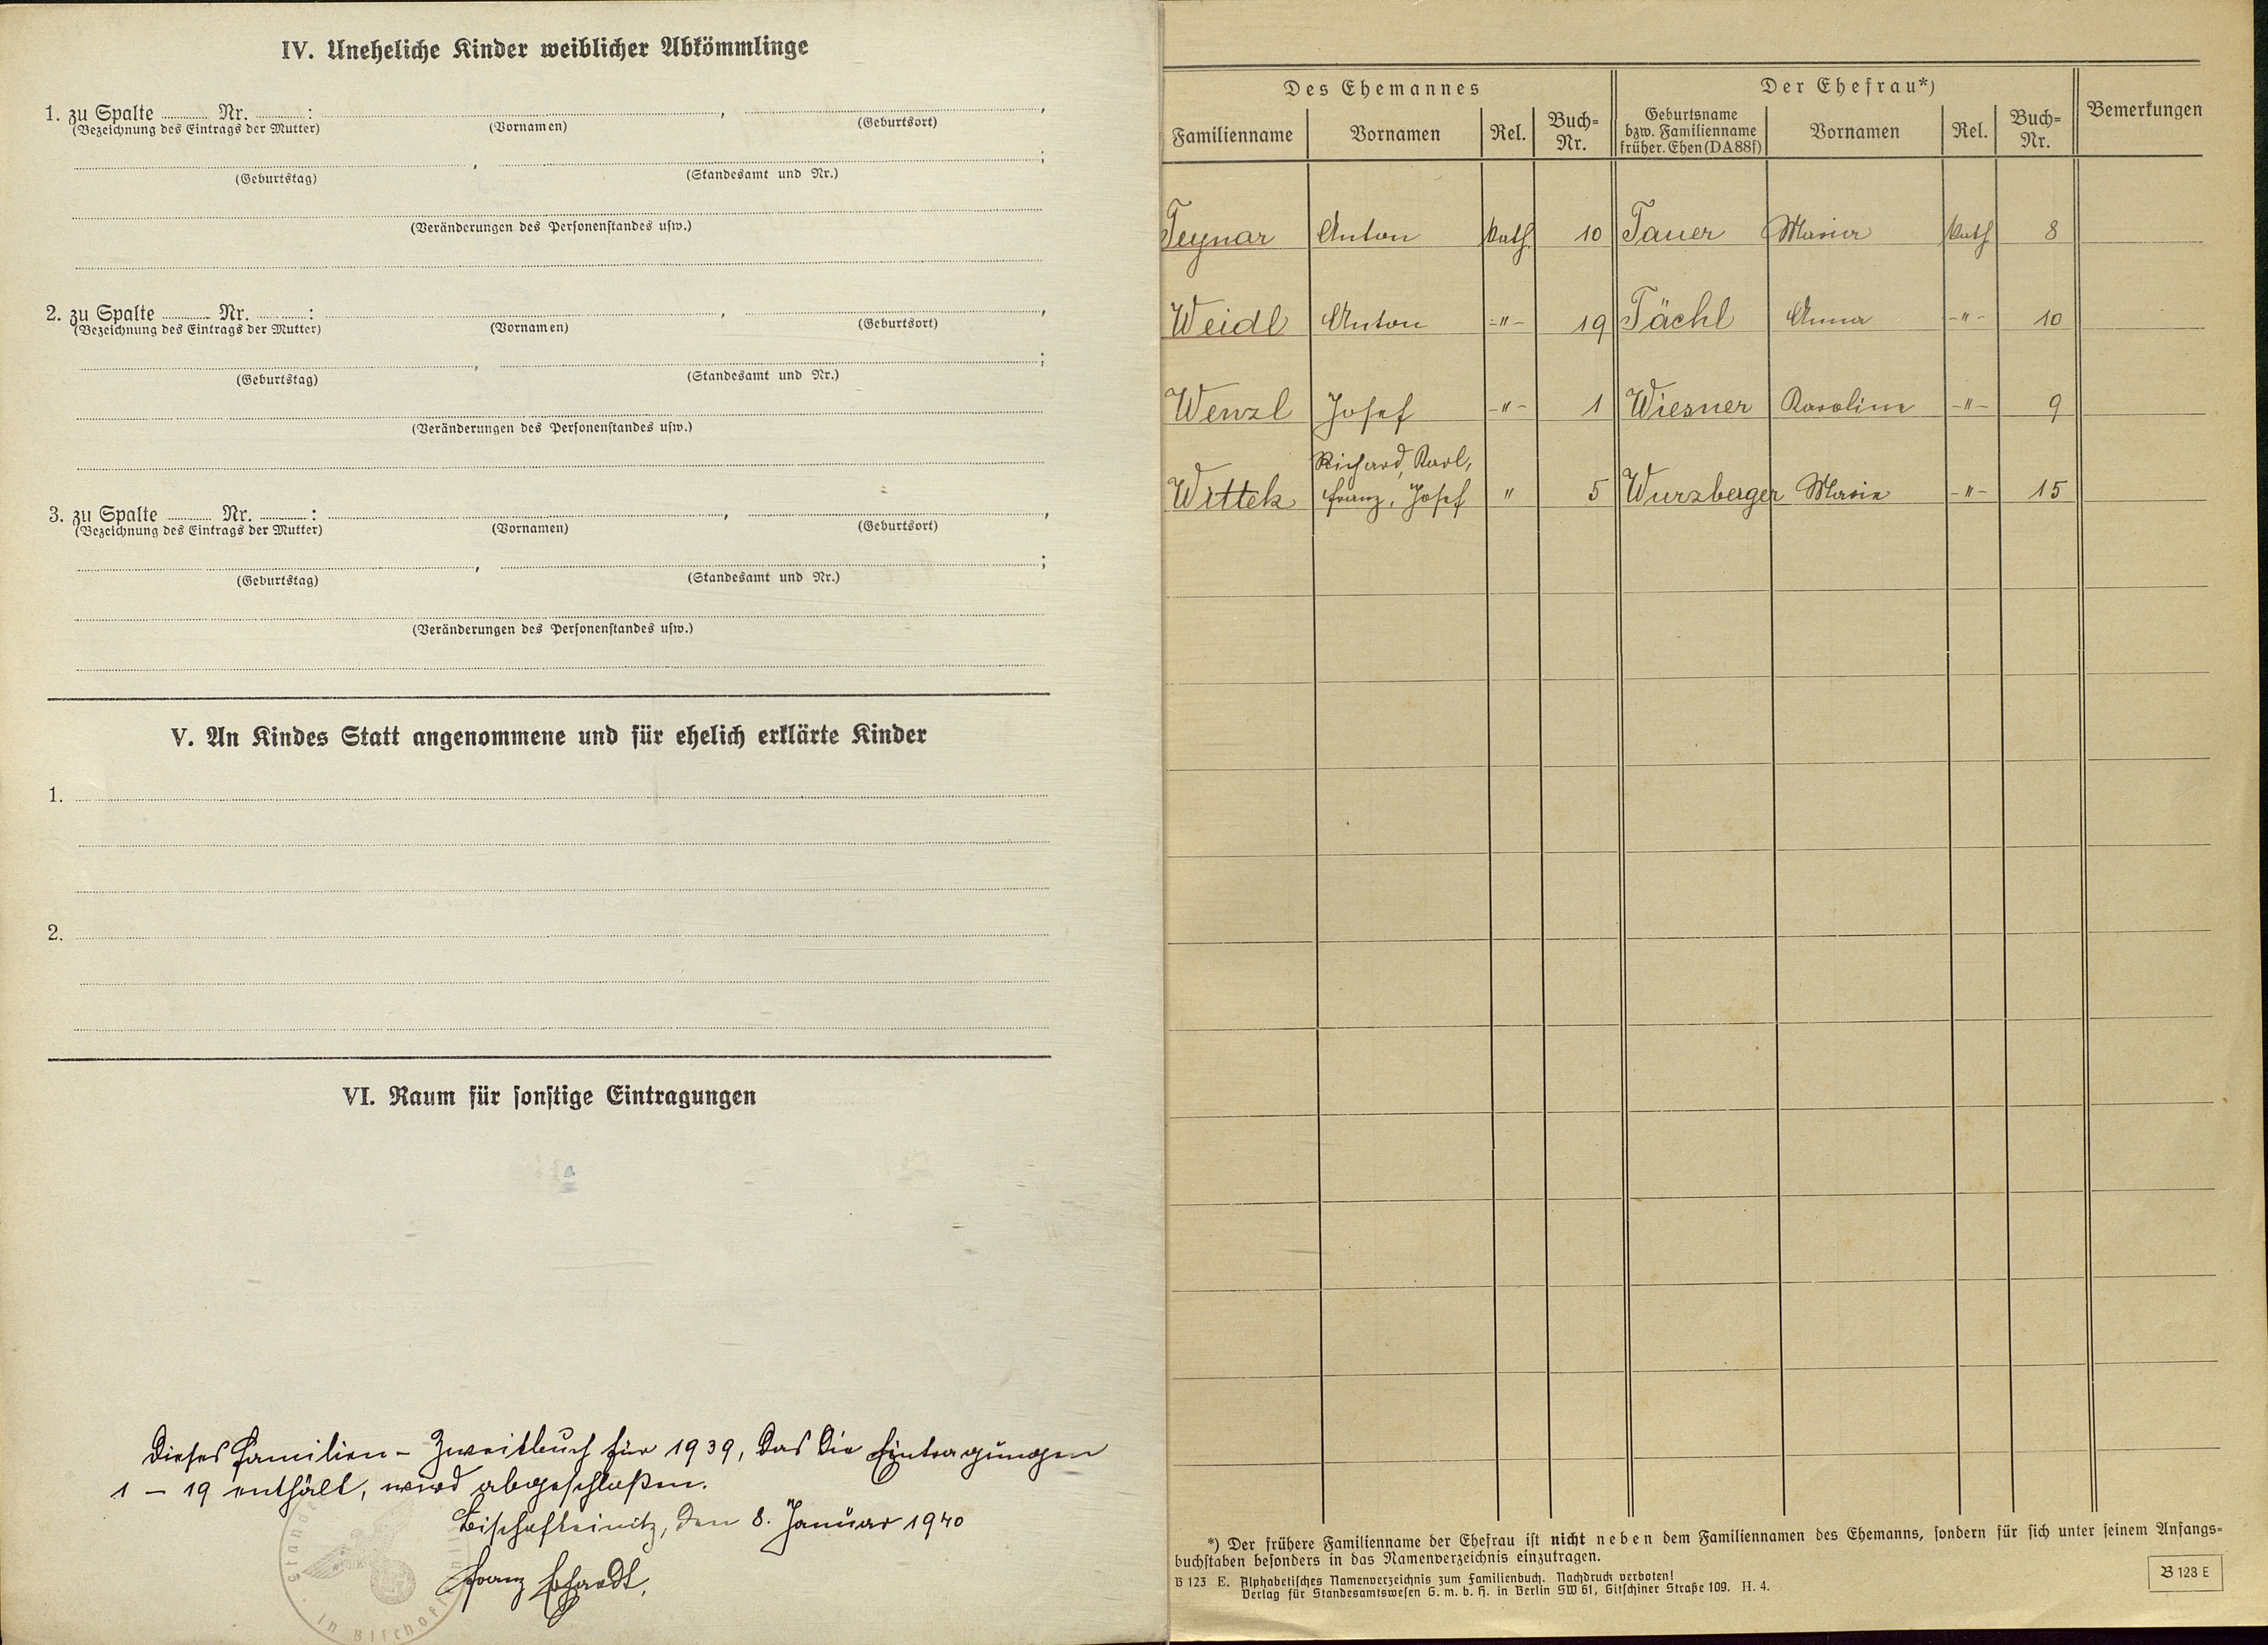 IV. Uneheliche Kinder weiblicher Abkömmlinge
1. zu Spalte ........ Nr. ........ :
(Bezeichnung des Eintrags der Mutter) (Vornamen) (Geburtsort)
(Geburtstag) (Standesamt und Nr.)
(Veränderungen des Personenstandes usw.)
2. zu Spalte ........ Nr. ........ :
(Bezeichnung des Eintrags der Mutter) (Vornamen) (Geburtsort)
(Geburtstag) (Standesamt und Nr.)
(Veränderungen des Personenstandes usw.)
3. zu Spalte ........ Nr. ........ :
(Bezeichnung des Eintrags der Mutter) (Vornamen) (Geburtsort)
(Geburtstag) (Standesamt und Nr.)
(Veränderungen des Personenstandes usw.)
V. An Kindes Statt angenommene und für ehelich erklärte Kinder
1.
2.
VI. Raum für sonstige Eintragungen
Dieses Familien- Zweitbuch für 1939, das die Eintragungen
1 – 19 enthält, wird abgeschloßen.
Bischofteinitz, den 8. Januar 1940
Franz
Des Ehemannes Der Ehefrau*) Bemerkungen
Familienname Vornamen Rel. Buch-Nr. Geburtsname bzw. Familienname früher. Ehen (DA 88f) Vornamen Rel. Buch-Nr.
Teynar Anton kath. 10 Tauer Maria kath 8
Weidl Anton -"- 19 Tächl Anna -"- 10
Wenzl Josef -"- 1 Wiesner Karolina -"- 9
Richard, Karl,
Wittek Franz, Josef " 5 Wurzberger Maria -"- 15
*) Der frühere Familienname der Ehefrau ist nicht neben dem Familiennamen des Ehemanns, sondern für sich unter seinem Anfangs-
buchstaben besonders in das Namenverzeichnis einzutragen.
B 123 E. Alphabetisches Namenverzeichnis zum Familienbuch. Nachdruck verboten!
Verlag für Standesamtswesen G. m. b. H. in Berlin SW 61, Gitschiner Straße 109. H. 4.
B 123 E